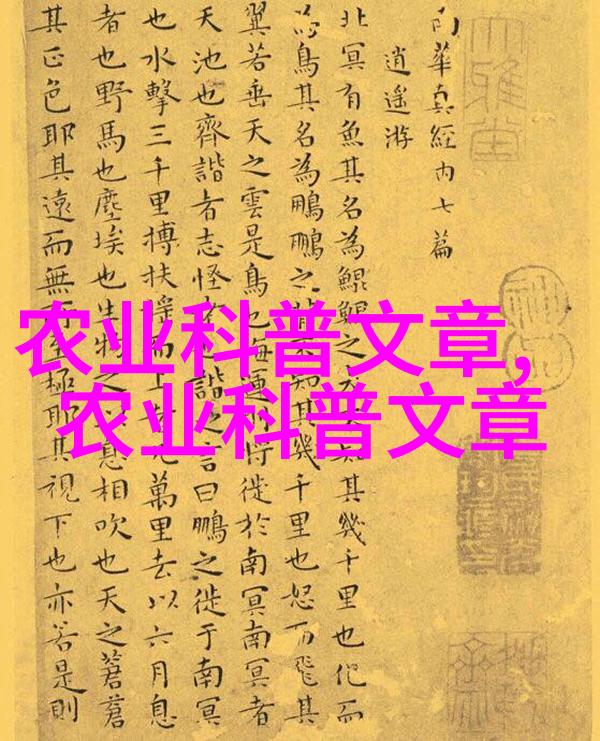 农业科普文章,
农业科普文章
南華真經内七篇
逍遥游
北冥有魚其名為鯤鯤之大不知其幾千里也化而
為鳥其名為鵬鵬之背不知其幾千里也怒而飛其
翼若垂天之雲是鳥也海運則將徙於南冥南冥者
天池也齊諧者志怪者也諧之言曰鵬之徙于南冥
也水擊三千里搏扶摇而上者九萬里去以六月息
者也野馬也塵埃也生物之以息相吹也天之蒼蒼
其正色耶其遠而無所至極耶其視下也亦若是則
大雅堂